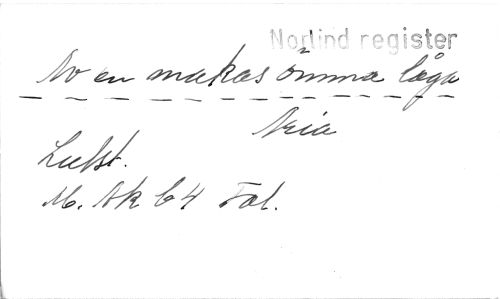 Norlind register
Av en makas ömma låga
Aria
M. Ak 64 Fol.